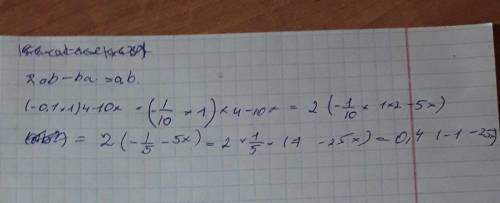 2ab-ba=ab.
(-0,1×1)4-10x = (-1/10 ×1)×4-10x = 2(-1/10 × 1×2-5x)
= 2(-1/5 -5x) = 2×1/5 × (-1 -25x) = 0,4 (-1 -25x)